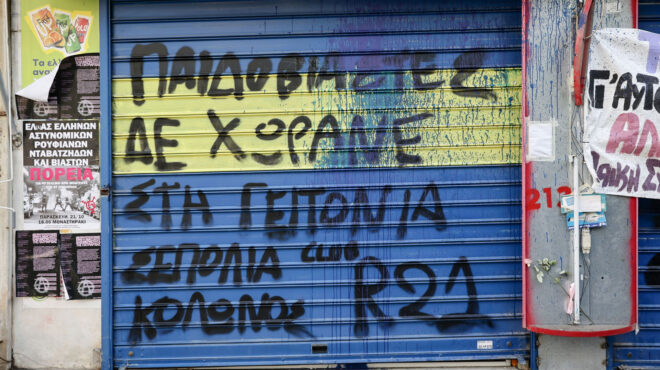 Τα ελ
αναψ
ΕΛ.ΑΣ ΕΛΛΗΝΩΝ
ΑΣΤΥΝΟΜΙΚΩΝ
ΡΟΥΦΙΑΝΩΝ
ΝΤΑΒΑΤΖΗΔΩΝ
ΚΑΙ ΒΙΑΣΤΩΝ
ΠΟΡΕΙΑ
ΠΑΡΑΣΚΕΥΗ 21.10
18.00 ΜΟΝΑΣΤΗΡΑΚΙ
ΠΑΙΔΟΒΙΑΣΤΕΣ
ΔΕ ΧΩΡΑΝΕ
ΣΤΗ ΓΕΙΤΟΝΙΑ
ΣΕΠΟΛΙΑ CLUB
ΚΟΛΩΝΟΣ R21
212
Γ'ΑΥΤΟ
ΑΛ